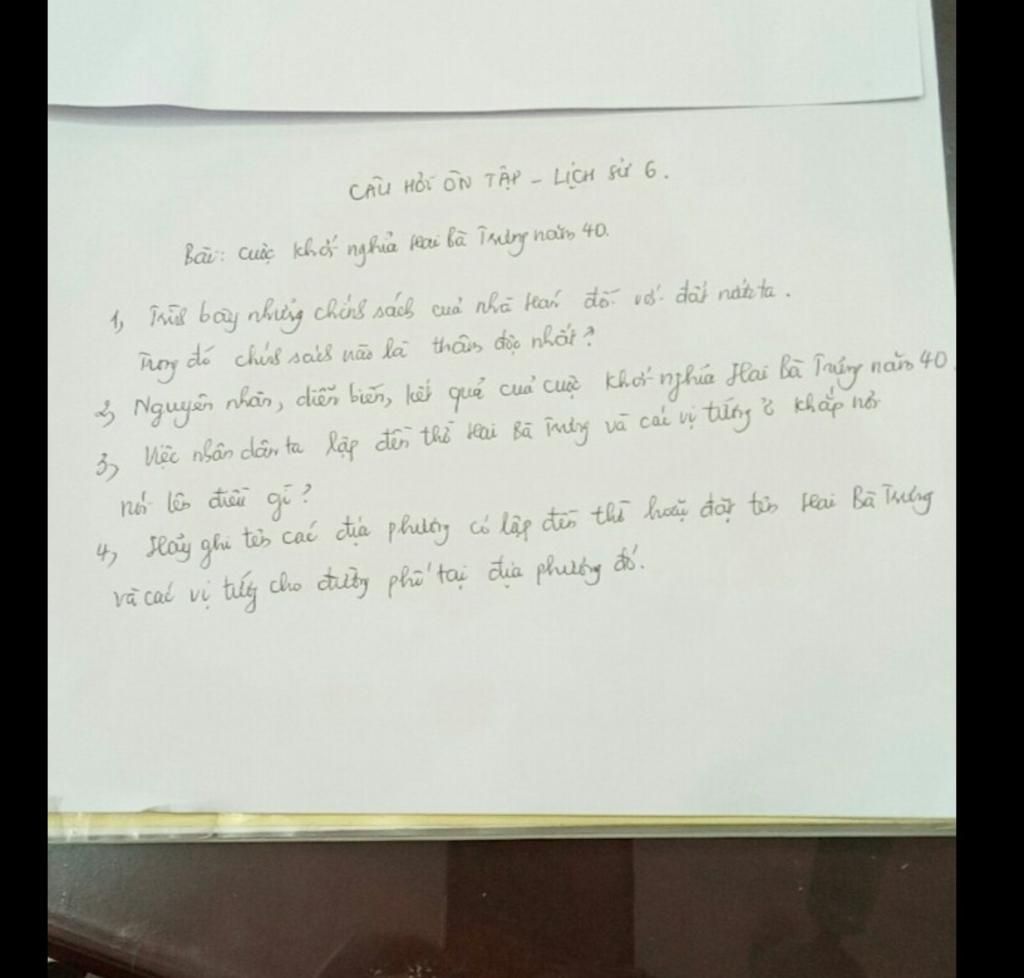 CÂU HỎI ÔN TẬP - LỊCH SỬ 6.
Bài: Cuộc khởi nghĩa Hai Bà Trưng năm 40.
1, Trình bày những chính sách của nhà Hán đối với đất nước ta.
Trong đó chính sách nào là thâm độc nhất?
2, Nguyên nhân, diễn biến, kết quả của cuộc khởi nghĩa Hai Bà Trưng năm 40.
3, Việc nhân dân ta lập đền thờ Hai Bà Trưng và các vị tướng ở khắp nơi
nói lên điều gì?
4, Hãy ghi tên các địa phương có lập đền thờ hoặc đặt tên Hai Bà Trưng
và các vị tướng cho đường phố tại địa phương đó.